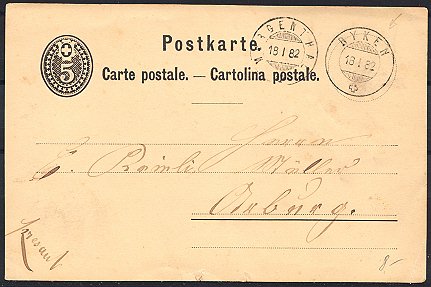 Postkarte.
Carte postale. — Cartolina postale.
5
MURGENTHAL
18 I 82
RYKEN
18 I 82
Herren
Müller
Aarburg.
8-